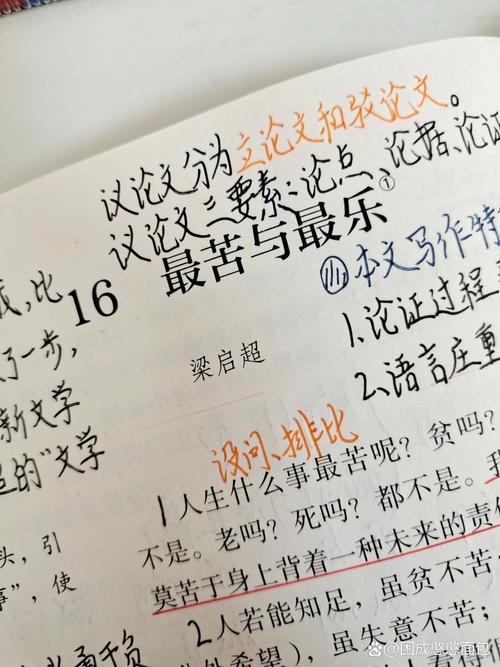 议论文分为立论文和驳论文。
议论文三要素:论点、论据、论证
16 最苦与最乐①
梁启超
本文写作特
1.论证过程
2.语言庄重
比
了一步,
新文学
的“文学
头,引
事”,使
设问、排比
1人生什么事最苦呢?贫吗?
不是。老吗?死吗?都不是。我
莫苦于身上背着一种未来的责任
2人若能知足,虽贫不苦;
外希望),虽失意不苦;
@困成憨憨面包